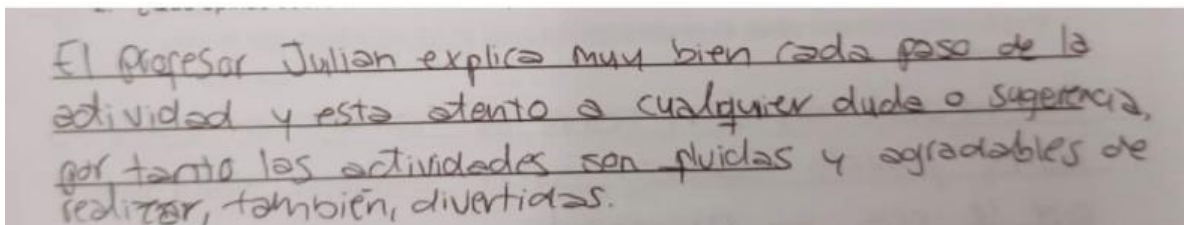 El profesor Julian explica muy bien cada paso de la
actividad y esta atento a cualquier duda o sugerencia,
por tanto las actividades son fluidas y agradables de
realizar, también, divertidas.